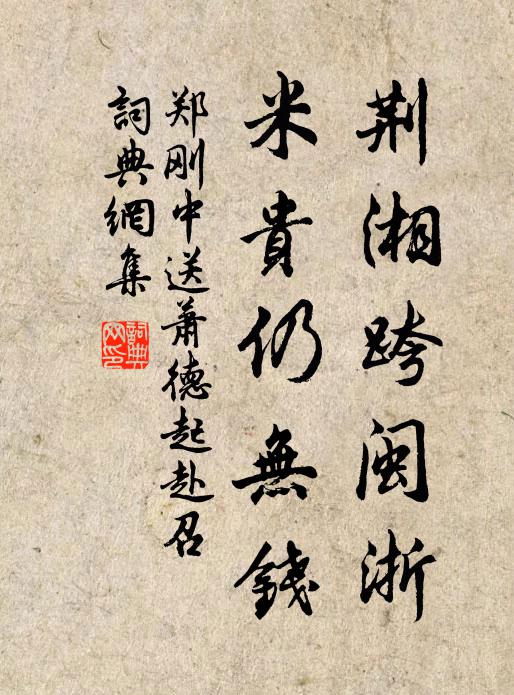 荆湘跨閩浙
米貴仍無錢
郑刚中送萧德起赴召
詞典網集
詞典
网印